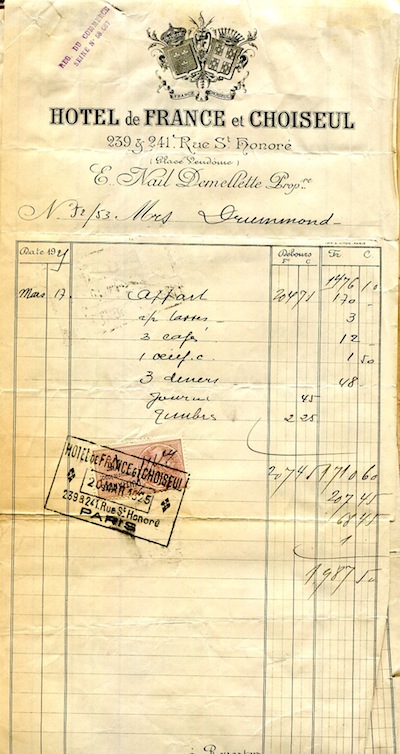 REG. DU COMMERCE
SEINE Nº
HOTEL de FRANCE et CHOISEUL
239 & 241 Rue St Honoré
(Place Vendôme)
E. Nail Domellette Propre
N. 52/53 Mrs Drummond
Date 1925 Débours Fr C
F C
1476 10
Mars 17 appart 204 75 170
3
3 café 12
1 œuf c. 1 50
3 diners 48
Journal 45
Timbres 2 25
207 45 1710 60
207 45
68 45
1
1.987 50
HOTEL DE FRANCE ET CHOISEUL
20 MAR 1925
239 & 241, Rue St Honoré
PARIS